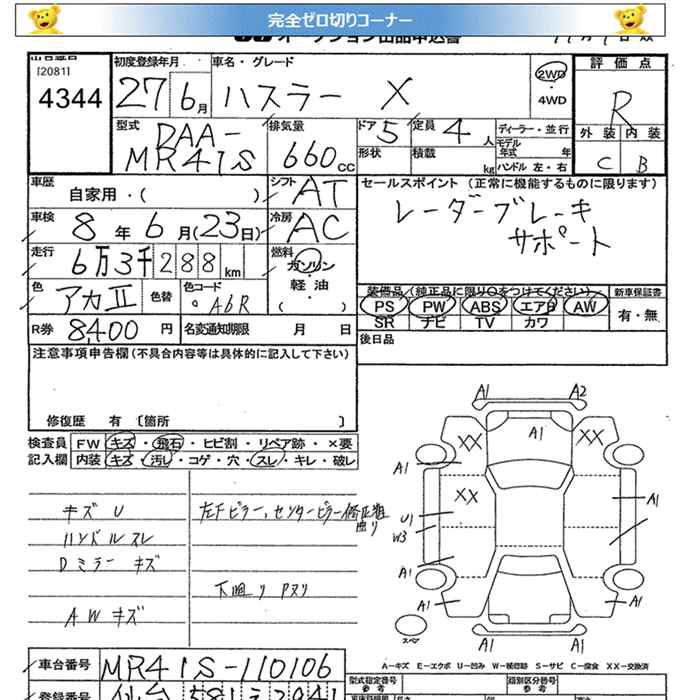 完全ゼロ切りコーナー
オークション出品申込書
出品番号 初度登録年月 車名・グレード 評価点
[2081]
4344 27 6月 ハスラー X 2WD・4WD R
型式 DAA-MR41S 排気量 660cc ドア 5 定員 4人 ディーラー・並行 外装 内装
形状 積載 kg モデル年式 年 ハンドル 左・右 C B
車歴 自家用・( ) シフト AT セールスポイント (正常に機能するものに限ります)
車検 8年 6月(23日) 冷房 AC レーダーブレーキ
サポート
走行 6万3千288km 燃料 ガソリン・軽油・( )
色 アカⅡ 色替 色コード A6R
装備品(純正品に限り○をつけてください) 新車保証書
PS PW ABS エアB AW 有・無
SR ナビ TV カワ
R券 8,400円 名変通知期限 月 日 後日品
注意事項申告欄(不具合内容等は具体的に記入して下さい)
修復歴 有 〔箇所 〕
検査員 FW キズ・飛石・ヒビ割・リペア跡・×要
記入欄 内装 キズ・汚し・コゲ・穴・スレ・キレ・破レ
キズU
ハンドルスレ
Dミラーキズ
AWキズ
左Fピラー、センターピラー修正
下廻りサビ
A1 A2
XX A1 XX
A1
XX A1
U1
W3
A1
A1 A1
スペア A1 A1
A−キズ E−エクボ U−凹み W−補修跡 S−サビ C−腐食 XX−交換済
車台番号 MR41S-110106
型式指定番号 参考 類別区分番号 参考
登録番号 仙台 581